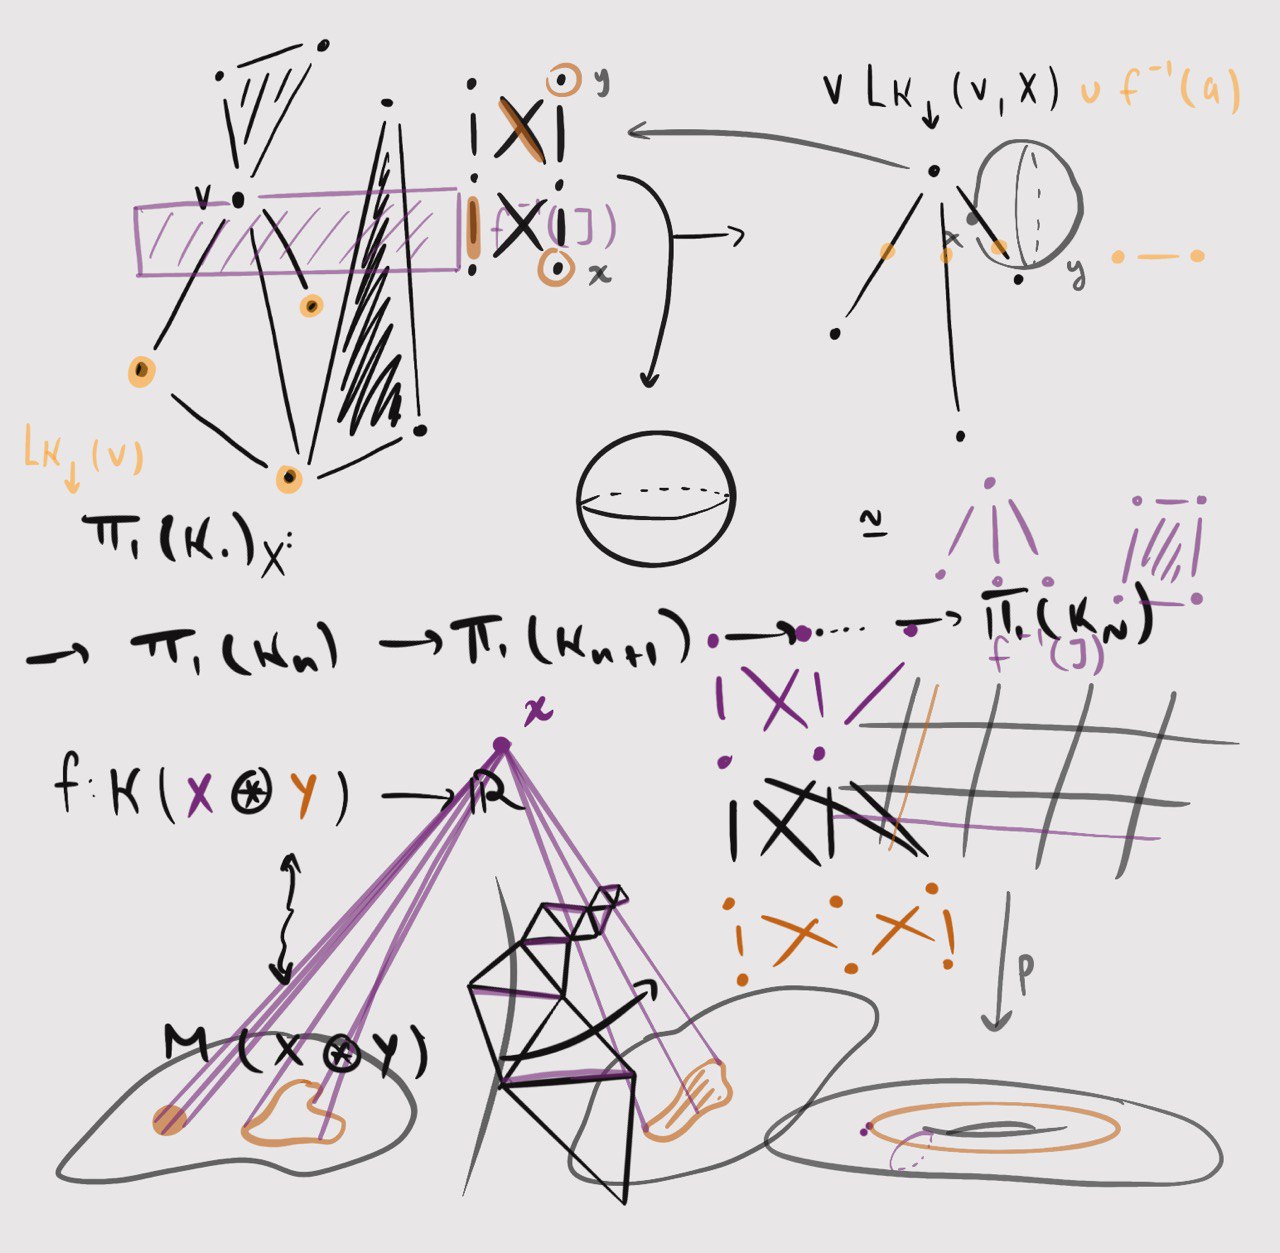 y
v Lk↓ (v, X) ∪ f⁻¹(a)
v
f⁻¹(J)
x
x
y
Lk↓(v)
π₁(K.)
X:
≃
→ π₁(Kₙ) → π₁(Kₙ₊₁) → ···· → π₁(K_N)
f⁻¹(J)
x
f: K(X ⊛ Y) → ℝ
p
M (X ⊛ Y)